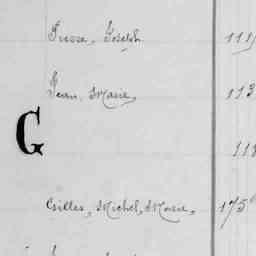 Piesse, Joseph 111
Jean, Marie, 113
G
118
Gilles, Michel, Marie, 175